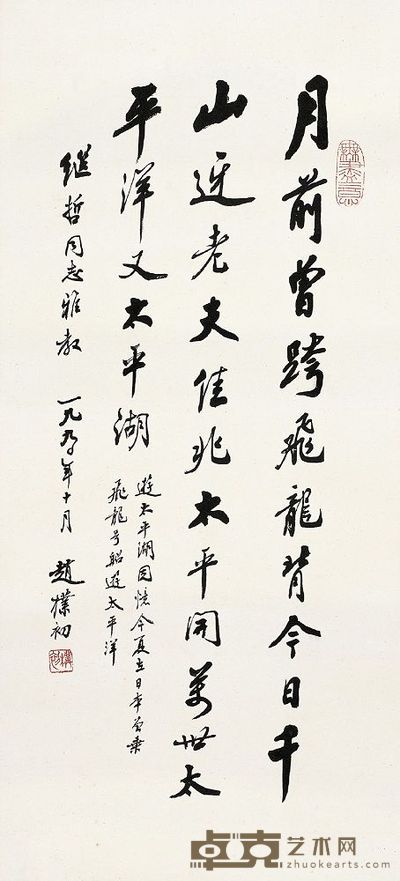 月前曾跨飛龍背今日千
山迓老夫佳兆太平開萬世太
平洋又太平湖
遊太平湖因憶今夏在日本曾乘
飛龍号船遊太平洋
继哲同志雅教
一九九〇年十月 趙樸初
卓克艺术网
zhuokearts.com